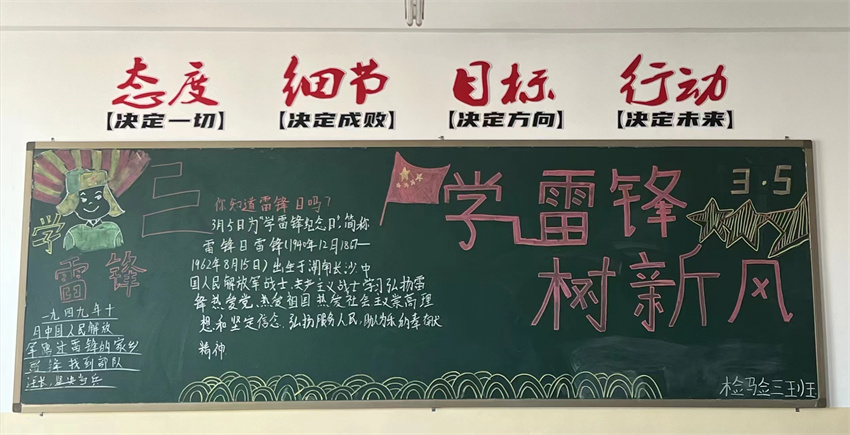 态度 细节 目标 行动
【决定一切】 【决定成败】 【决定方向】 【决定未来】
学
雷锋
一九四九年十
月中国人民解放
军路过雷锋的家乡
找到部队
三
你知道雷锋日吗?
3月5日为"学雷锋纪念日",简称
雷锋日雷锋(1940年12月18日—
1962年8月15日)出生于湖南长沙中
国人民解放军战士,共产主义战士学习弘扬雷
锋热爱党,热爱祖国热爱社会主义崇高理
想和坚定信念.弘扬服务人民,助人为乐的奉献
精神
学雷锋
3.5
树新风
检验三班